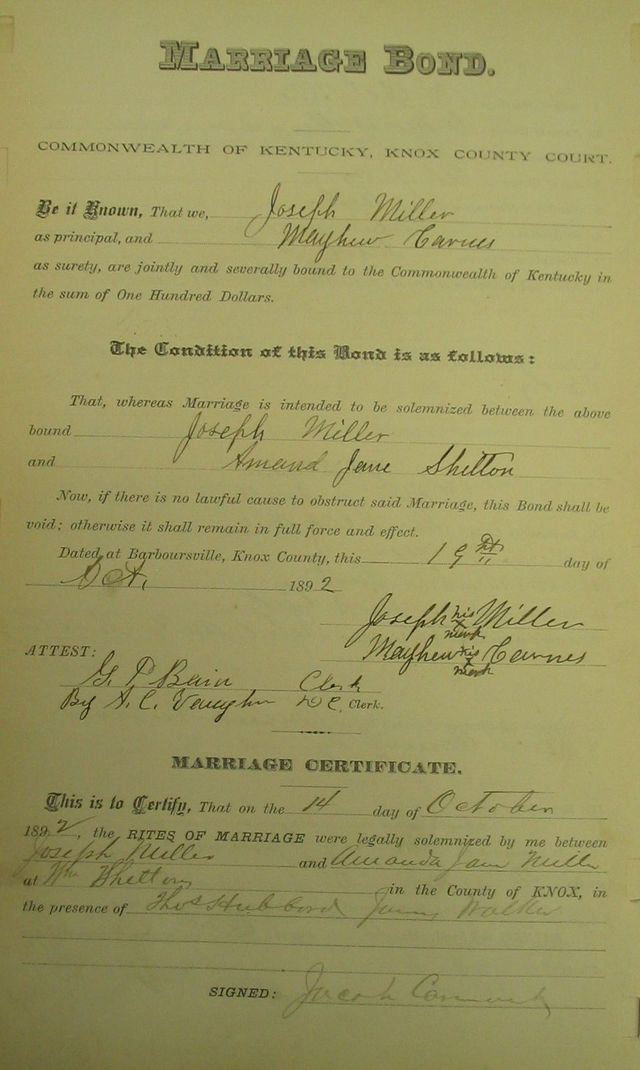 MARRIAGE BOND.
COMMONWEALTH OF KENTUCKY, KNOX COUNTY COURT.
Be it Known, That we, Joseph Miller
as principal, and Mayhew Carnes
as surety, are jointly and severally bound to the Commonwealth of Kentucky in
the sum of One Hundred Dollars.
The Condition of this Bond is as follows:
That, whereas Marriage is intended to be solemnized between the above
bound Joseph Miller
and Amand Jane Shelton
Now, if there is no lawful cause to obstruct said Marriage, this Bond shall be
void; otherwise it shall remain in full force and effect.
Dated at Barboursville, Knox County, this 19th day of
Oct. 1892
Joseph his x mark Miller
Mayhew his x mark Carnes
ATTEST:
G. P. Bain Clerk
By A. C. Vaughn D.C. Clerk.
MARRIAGE CERTIFICATE.
This is to Certify, That on the 14 day of October
1892, the RITES OF MARRIAGE were legally solemnized by me between
Joseph Miller and Amanda Jane Miller
at Wm Shelton in the County of KNOX, in
the presence of Thos Hubbard Walker
SIGNED: Jacob